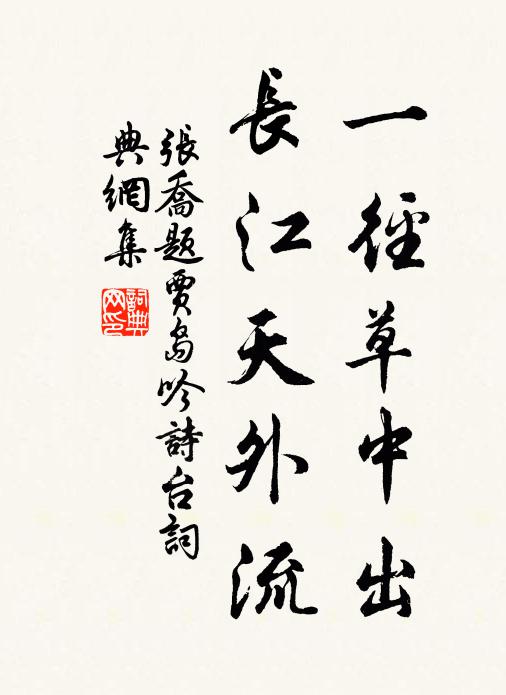 一徑草中出
長江天外流
張喬題賈島吟詩台詞
典網集
詞典
网印